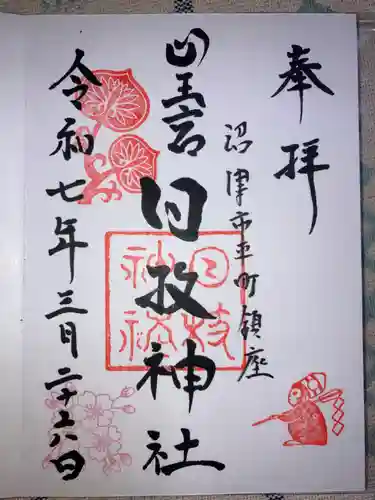 奉拝
沼津市平町鎮座
日枝神社
令和七年三月二十六日
日枝
神社